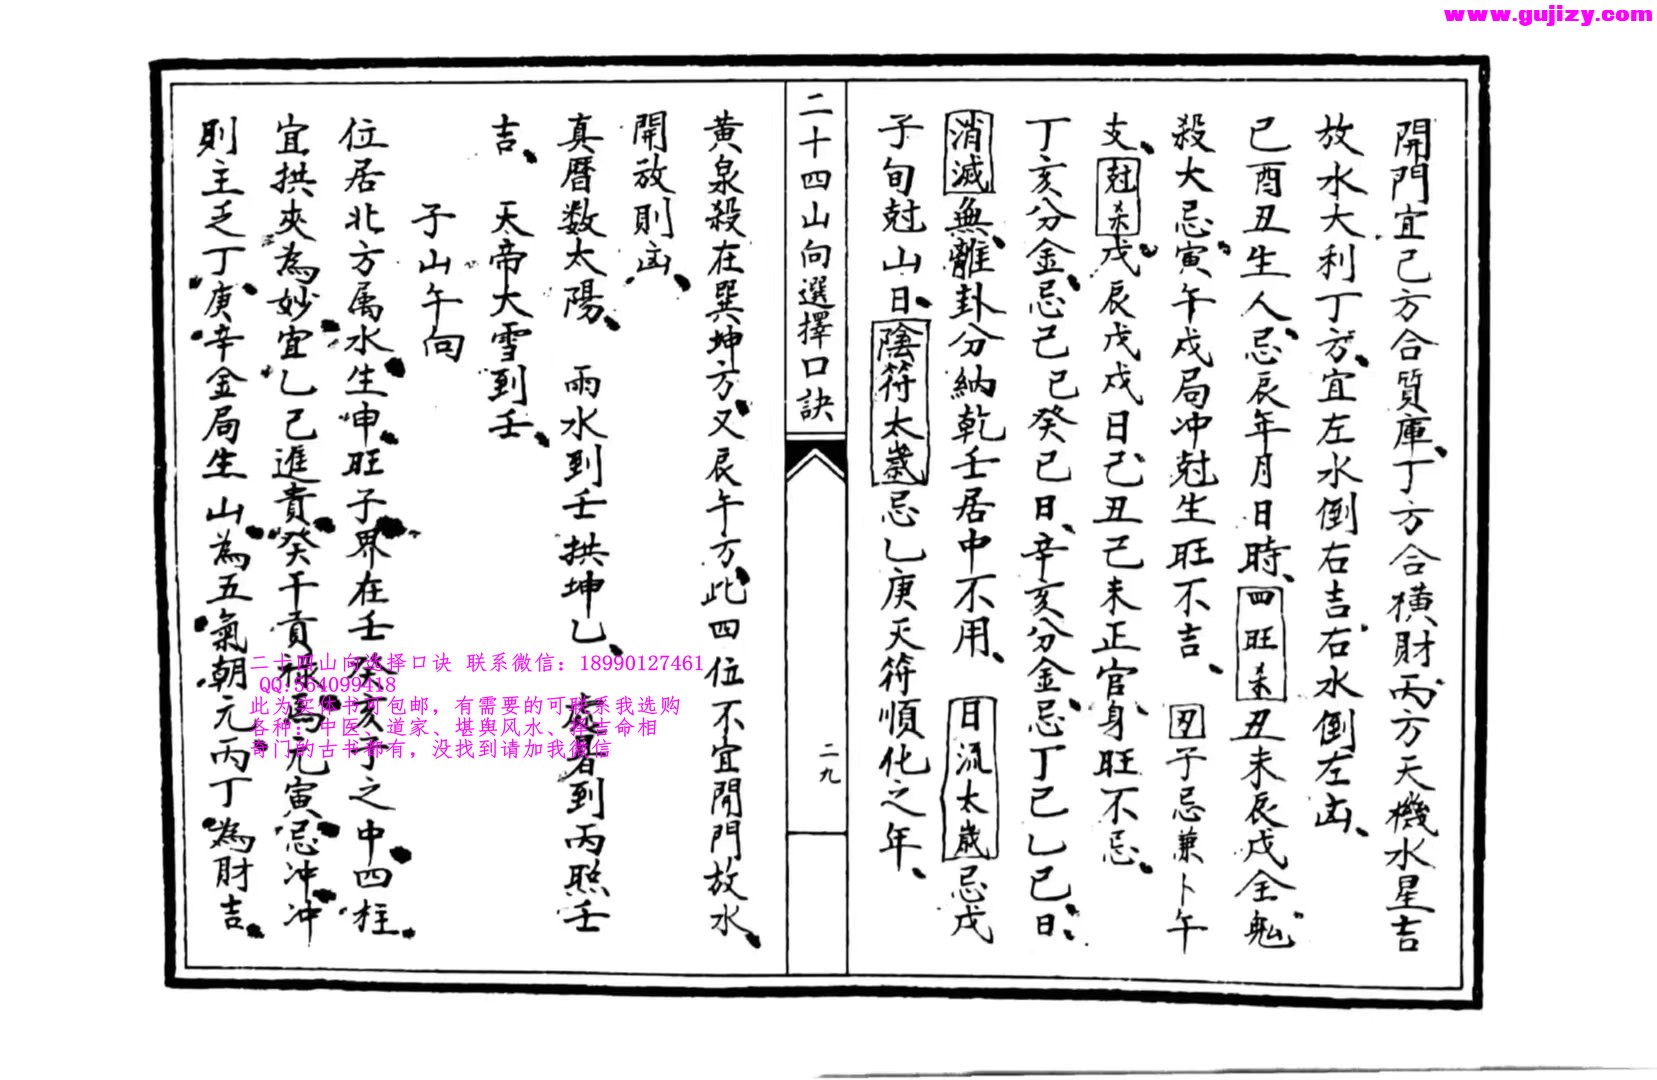 www.gujizy.com
開門宜己方合質庫丁方合橫財丙方天機水星吉
放水大利丁方宜左水倒右吉右水倒左凶
己酉丑生人忌辰年月日時四旺杀丑未辰戌全
殺大忌寅午戌局冲尅生旺不吉 丑子忌兼卜午
支尅杀戊辰戊戌日己丑己未正官身旺不忌
丁亥分金忌己巳癸巳日辛亥分金忌丁巳乙巳日
消滅無離卦分納乾壬居中不用 日流太歲忌戊
子旬尅山日陰符太歲忌乙庚天符順化之年
二十四山向選擇口訣
二九
黃泉殺在巽坤方又辰午方此四位不宜開門放水
開放則凶
真曆数太陽 雨水到壬拱坤乙 處暑到丙照壬
吉 天帝大雪到壬
子山午向
位居北方属水生申旺子界在壬癸亥子之中四柱
宜拱夾為妙宜乙己進貴癸干貢祿馬元寅忌冲冲
則主乏丁庚辛金局生山為五氣朝元丙丁為財吉
二十四山向选择口诀 联系微信：18990127461
QQ:554099418
此为实体书可包邮，有需要的可联系我选购
各种：中医、道家、堪舆风水、择吉命相
奇门的古书都有，没找到请加我微信